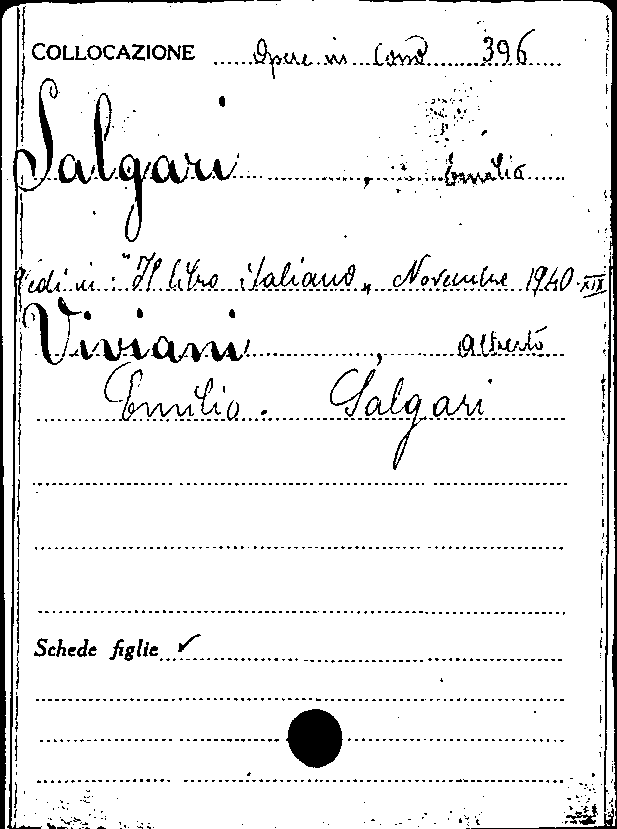 COLLOCAZIONE Opere in Cons 396
Salgari, Emilio
Vedi in: "Il libro italiano„ Novembre 1940·XIX
Viviani, Alberto
Emilio. Salgari
Schede figlie ✓